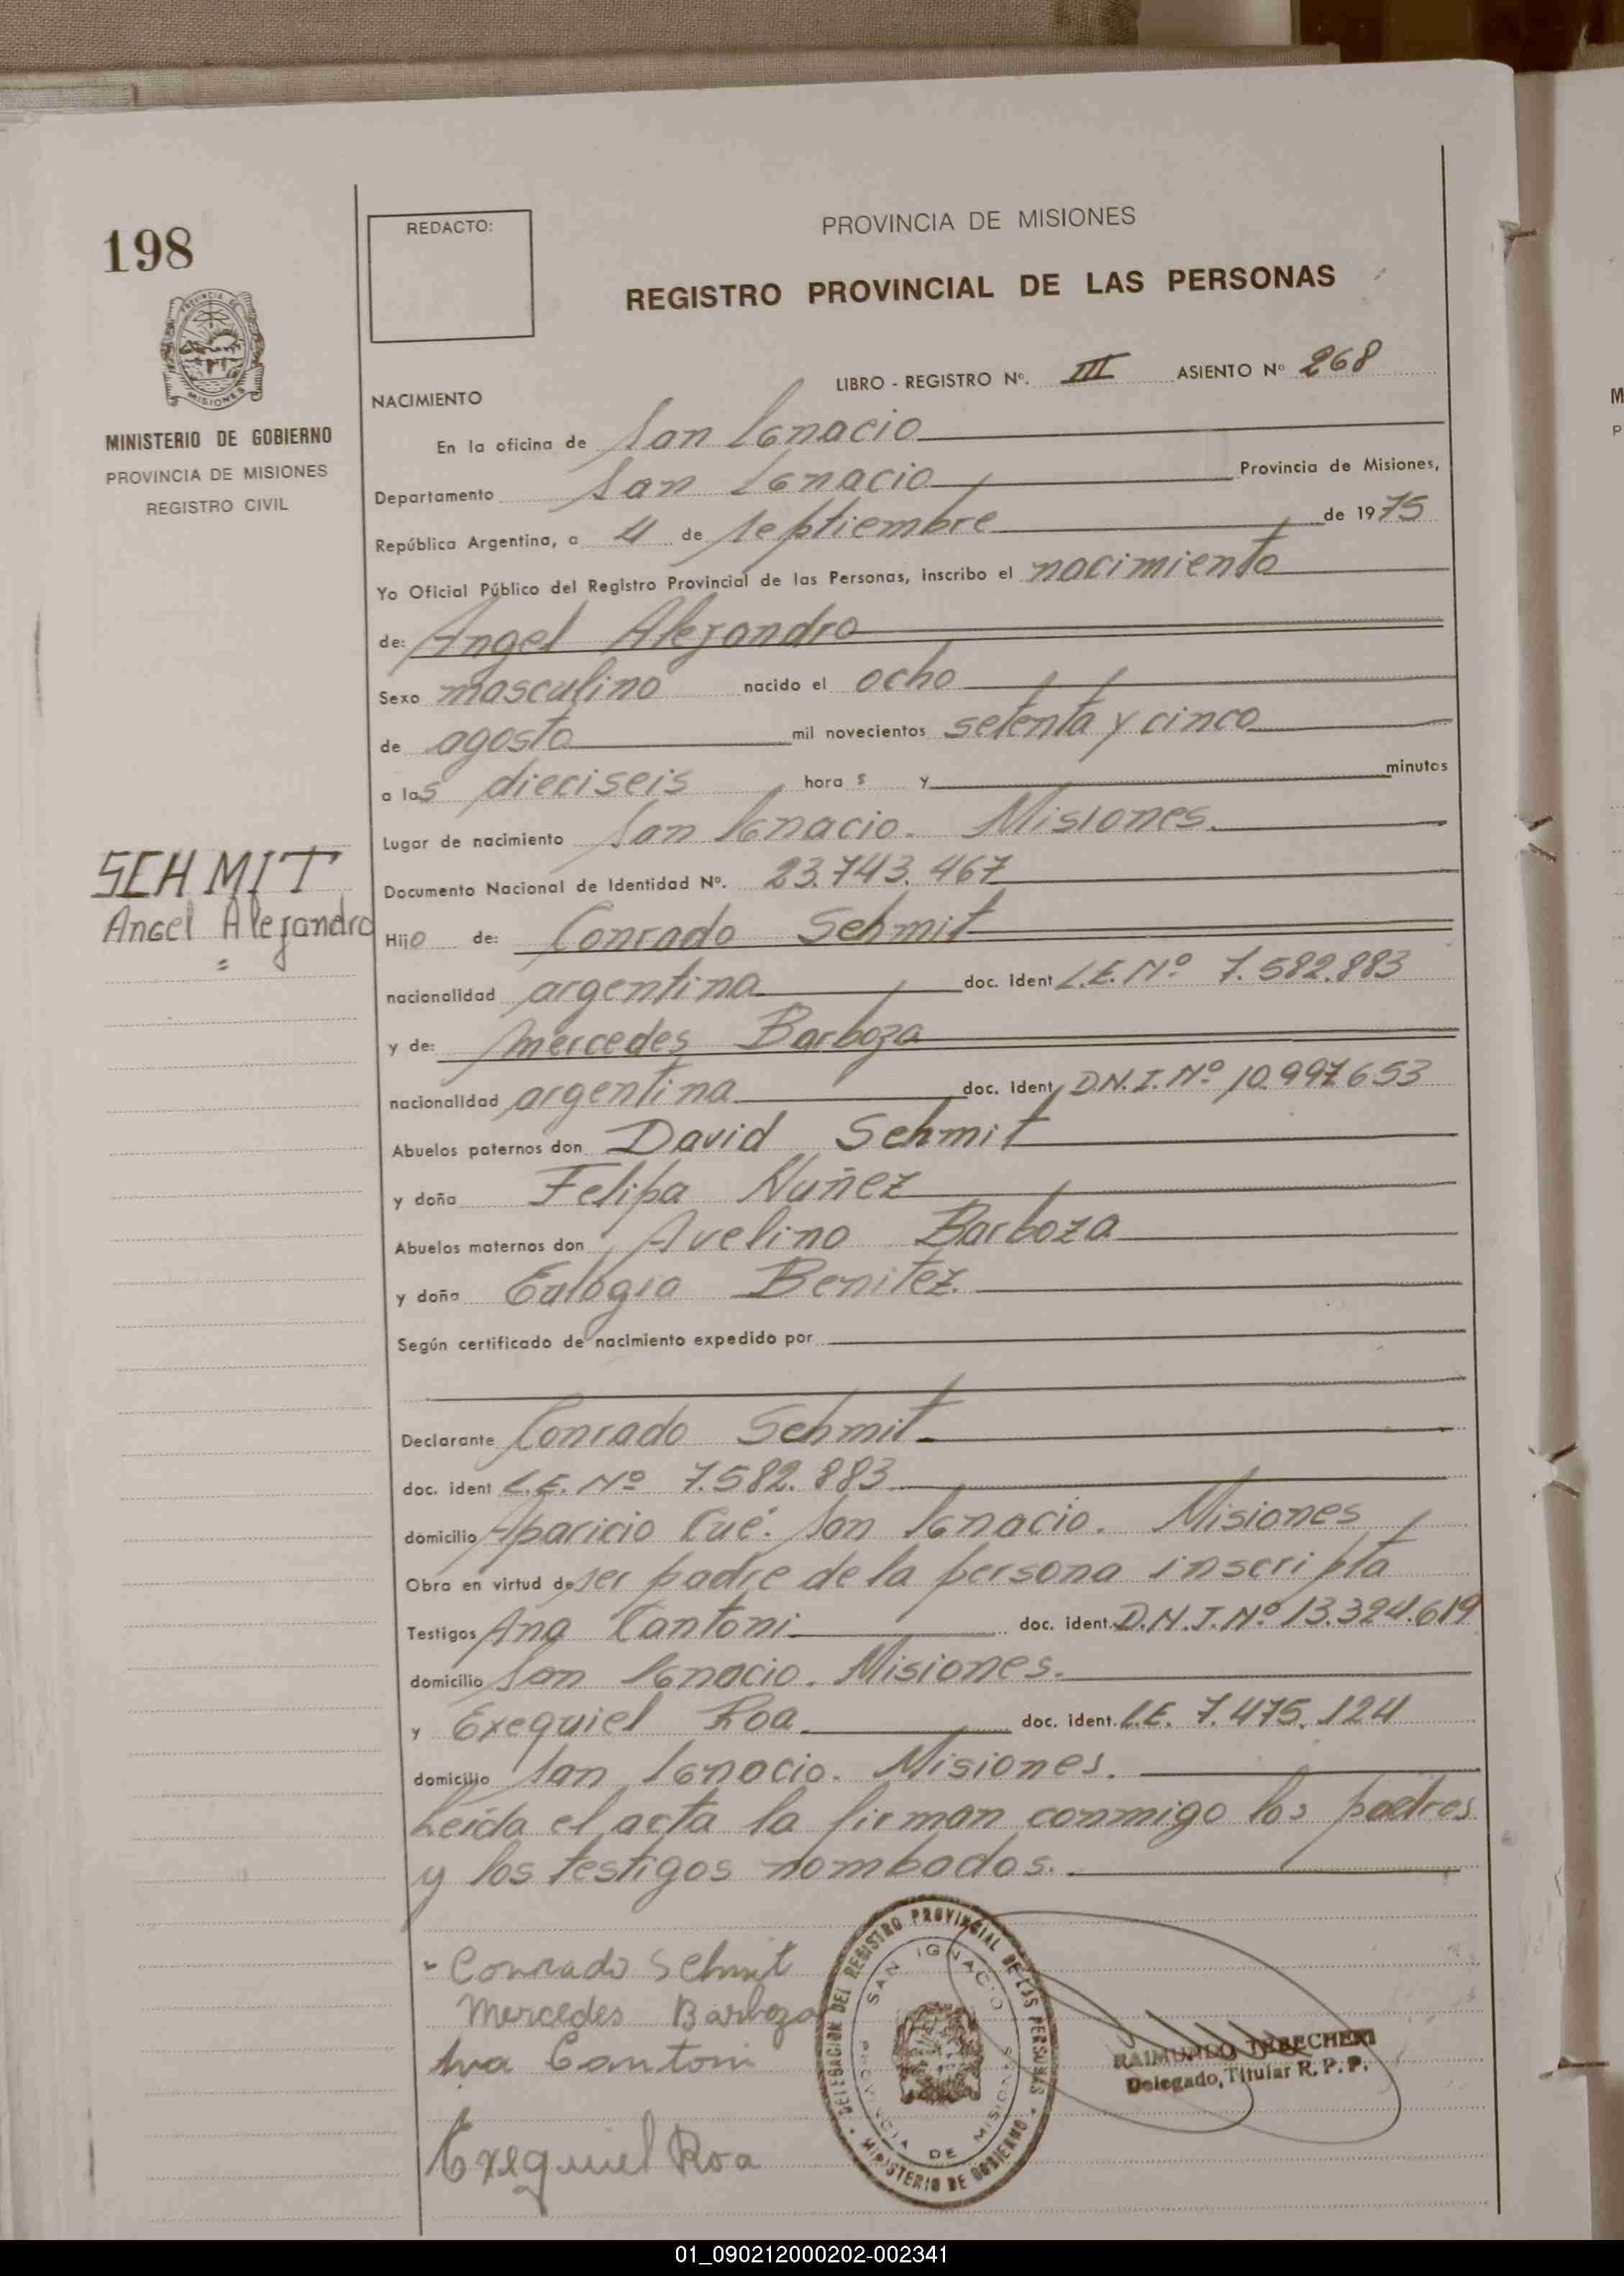 198
REDACTO:
PROVINCIA DE MISIONES
REGISTRO PROVINCIAL DE LAS PERSONAS
PROVINCIA DE
MISIONES
MINISTERIO DE GOBIERNO
PROVINCIA DE MISIONES
REGISTRO CIVIL
LIBRO - REGISTRO Nº. III ASIENTO Nº 268
NACIMIENTO
En la oficina de San Ignacio
Departamento San Ignacio Provincia de Misiones,
República Argentina, a 4 de septiembre de 1975
Yo Oficial Público del Registro Provincial de las Personas, inscribo el nacimiento
de: Angel Alejandro
Sexo masculino nacido el ocho
de agosto mil novecientos setenta y cinco
a las dieciseis hora s y minutos
Lugar de nacimiento San Ignacio. Misiones.
SEHMIT
Angel Alejandro
Documento Nacional de Identidad Nº. 23.743.467
Hijo de: Conrado Sehmit
nacionalidad argentina doc. ident L.E. Nº 7.582.883
y de: Mercedes Barboza
nacionalidad argentina doc. ident D.N.I. Nº 10.997.653
Abuelos paternos don David Sehmit
y doña Felipa Nuñez
Abuelos maternos don Avelino Barboza
y doña Eulogia Benitez.
Según certificado de nacimiento expedido por
Declarante Conrado Sehmit
doc. ident L.E. Nº 7.582.883
domicilio Aparicio Cué. San Ignacio. Misiones
Obra en virtud de ser padre de la persona inscripta
Testigos Ana Cantoni doc. ident. D.N.I. Nº 13.324.619
domicilio San Ignacio. Misiones.
y Exequiel Roa doc. ident. L.E. 7.475.124
domicilio San Ignacio. Misiones.
Leída el acta la firman conmigo los padres
y los testigos nombados.
Conrado Sehmit
Mercedes Barboza
Ana Cantoni
Exequiel Roa
DELEGACION DEL REGISTRO PROVINCIAL DE LAS PERSONAS
MINISTERIO DE GOBIERNO
SAN IGNACIO
PROVINCIA DE MISIONES
RAIMUNDO
Delegado Titular R. P. P.
01_090212000202-002341